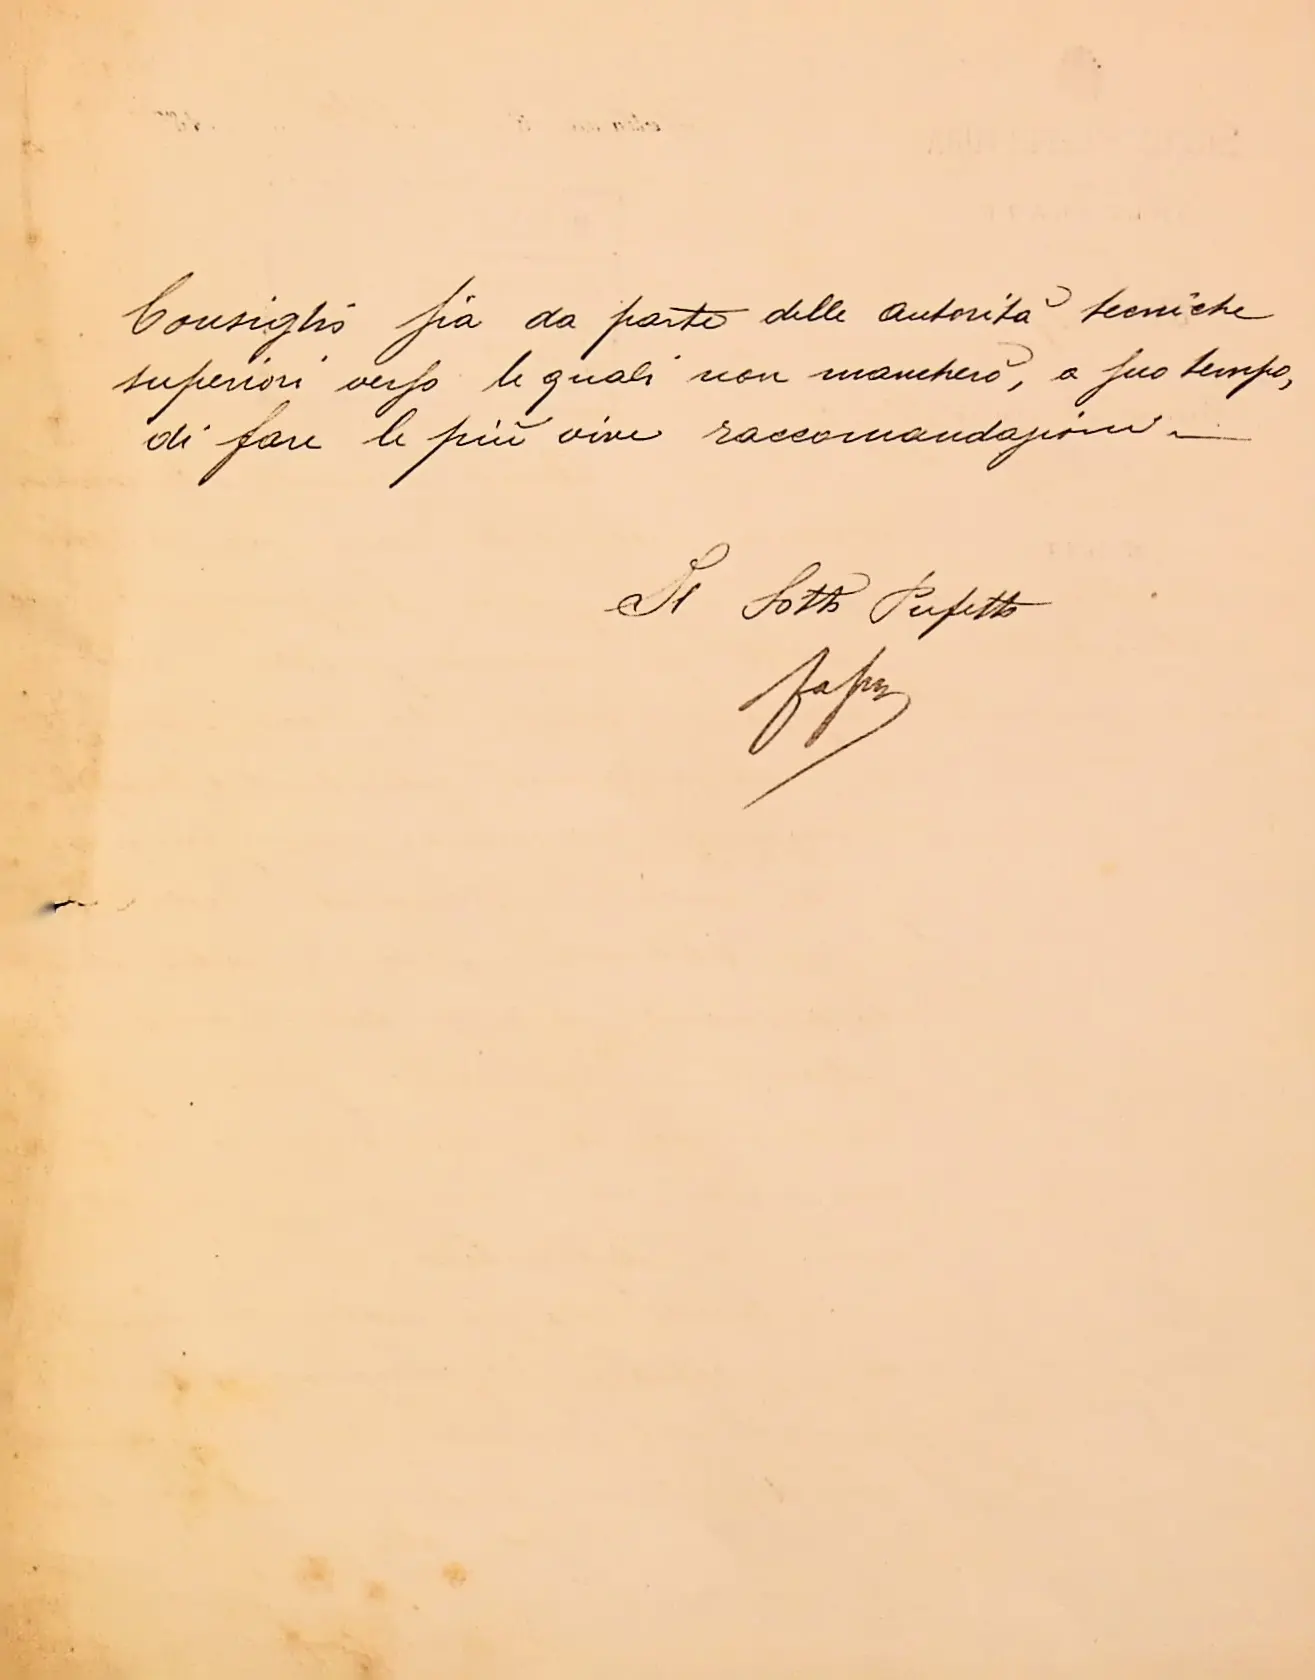 Consiglio sia da parte delle autorità tecniche
superiori verso le quali non mancherò, a suo tempo,
di fare le più vive raccomandazioni. —
Il Sotto Prefetto